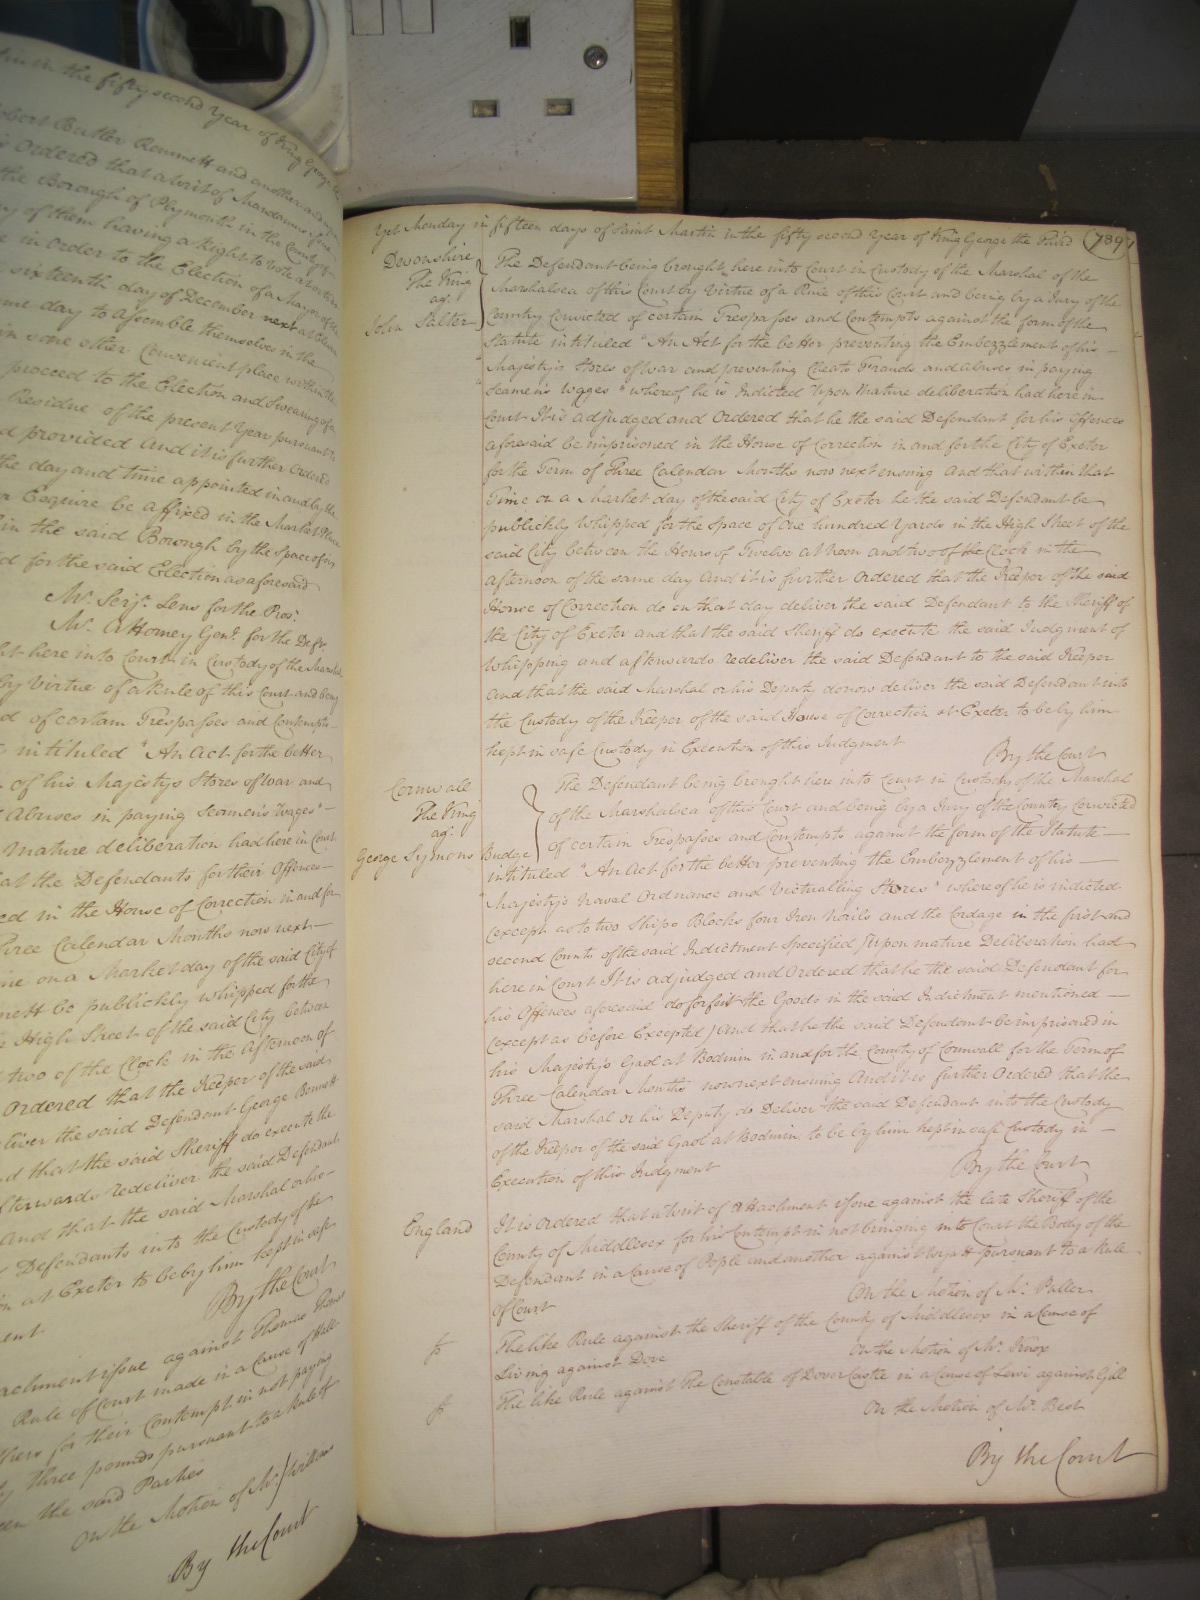 in the fifty second Year of King George the
Robert Butler Bennett and another and
is Ordered that a Writ of Mandamus issue
the Borough of Plymouth in the County of
of them having a Right to vote
in Order to the Election of a Mayor of the
sixteenth day of December next at Eleven
same day to Assemble themselves in the
in some other Convenient place within the
proceed to the Election and Swearing of a
Residue of the present Year pursuant to
provided And it is further Ordered
the day and time appointed in and by the
Esquire be affixed in the Market Place
in the said Borough by the space of six
for the said Election as aforesaid
Mr. Serjt. Lens for the Pros.
Mr. Attorney Genl. for the Deft.
here into Court in Custody of the Marshal
by Virtue of a Rule of this Court and being
of certain Trespasses and Contempts
intituled "An Act for the better
of his Majestys Stores of War and
Abuses in paying Seamen's Wages"
mature deliberation had here in Court
the Defendants for their Offences
in the House of Correction in and for
Three Calendar Months now next
on a Market day of the said City of
be publickly whipped for the
High Street of the said City between
two of the Clock in the Afternoon of
Ordered that the Keeper of the said
the said Defendant George Bennett
that the said Sheriff do execute the
afterwards redeliver the said Defendant
And that the said Marshal or his
Defendants into the Custody of the
at Exeter to be by him kept in safe
By the Court
issue against Thomas
Rule of Court made in a Cause of
for their Contempt in not paying
three pounds pursuant to a Rule of
the said Parties
On the Motion of Mr.
By the Court
Yet Monday in fifteen days of Saint Martin in the fifty second Year of King George the Third (789)
Devonshire
The King
agt.
John Salter
The Defendant being brought here into Court in Custody of the Marshal of the
Marshalsea of this Court by Virtue of a Rule of this Court and being by a Jury of the
Country Convicted of certain Trespasses and Contempts against the form of the
Statute intituled "An Act for the better preventing the Embezzlement of his
" Majesty's Stores of War and preventing Cheats Frauds and abuses in paying
" Seamens Wages" whereof he is Indicted Upon Mature deliberation had here in
Court It is adjudged and Ordered that he the said Defendant for his Offences
aforesaid be imprisoned in the House of Correction in and for the City of Exeter
for the Term of Three Calendar Months now next ensuing And that within that
Time on a Market day of the said City of Exeter he the said Defendant be
publickly Whipped for the Space of One hundred Yards in the High Street of the
said City between the Hours of Twelve at Noon and two of the Clock in the
afternoon of the same day And it is further Ordered that the Keeper of the said
House of Correction do on that day deliver the said Defendant to the Sheriff of
the City of Exeter and that the said Sheriff do execute the said Judgment of
Whipping and afterwards redeliver the said Defendant to the said Keeper
And that the said Marshal or his Deputy do now deliver the said Defendant into
the Custody of the Keeper of the said House of Correction at Exeter to be by him
kept in safe Custody in Execution of this Judgment
By the Court
Cornwall
The King
agt.
George Symons Budge
The Defendant being brought here into Court in Custody of the Marshal
of the Marshalsea of this Court and being by a Jury of the Country Convicted
of certain Trespasses and Contempts against the form of the Statute
intituled "An Act for the better preventing the Embezzlement of his
" Majesty's Naval Ordnance and Victualling Stores" whereof he is indicted
(except as to two Ships Blocks four Iron and the Cordage in the first and
second Counts of the said Indictment Specified) Upon mature Deliberation had
here in Court It is adjudged and Ordered that he the said Defendant for
his Offences aforesaid do forfeit the Goods in the said Indictment mentioned
(except as before Excepted) And that he the said Defendant be imprisoned in
his Majesty's Gaol at Bodmin in and for the County of Cornwall for the Term of
Three Calendar Months now next ensuing And it is further Ordered that the
said Marshal or his Deputy do Deliver the said Defendant into the Custody
of the Keeper of the said Gaol at Bodmin to be by him kept in safe Custody in
Execution of this Judgment
By the Court
England
It is Ordered that a Writ of Attachment issue against the late Sheriff of the
County of Middlesex for his Contempt in not bringing into Court the Body of the
Defendant in a Cause of Pople and another against Wyatt pursuant to a Rule
of Court
On the Motion of Mr. Puller
The like Rule against the Sheriff of the County of Middlesex in a Cause of
Living against Dove
On the Motion of Mr. Knox
The like Rule against The Constable of Dover Castle in a Cause of Levi against Gill
On the Motion of Mr. Best
By the Court